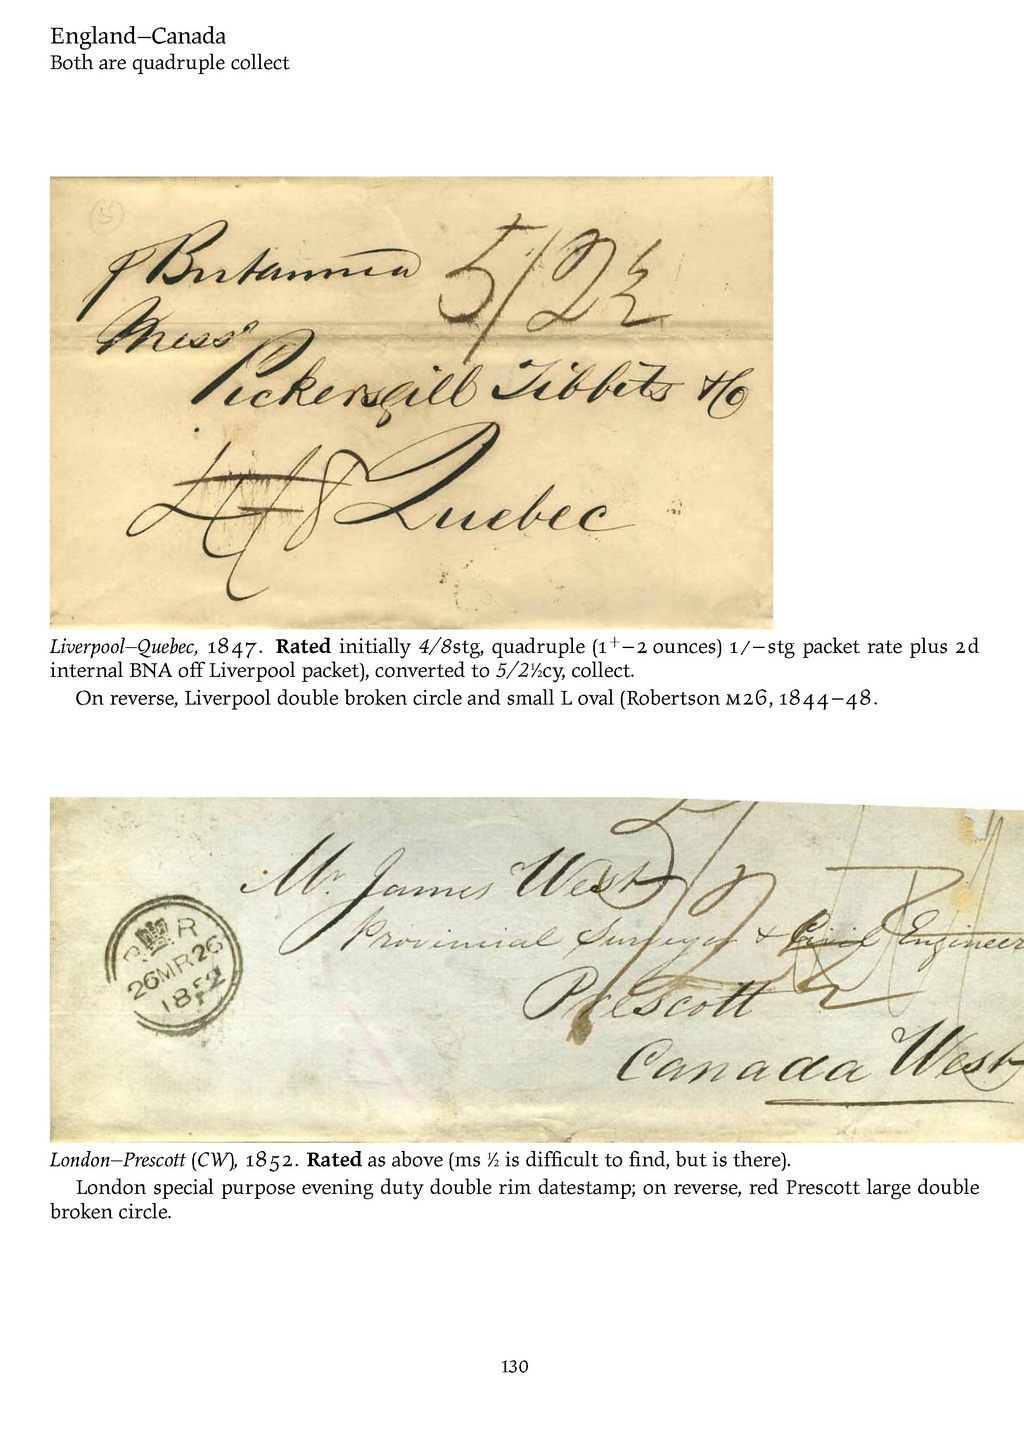 England–Canada
Both are quadruple collect
5
p Britannia 5/2½
Mess
Pickersgill Tibbits & Co
4/8 Quebec
Liverpool–Quebec, 1847. Rated initially 4/8stg, quadruple (1⁺–2 ounces) 1/–stg packet rate plus 2d
internal BNA off Liverpool packet), converted to 5/2½cy, collect.
On reverse, Liverpool double broken circle and small L oval (Robertson M26, 1844–48.
Mr. James West 5/2½
Provinnial Surveyor & Civil Engineer
Prescott
Canada West
R
26MR26
1852
London–Prescott (CW), 1852. Rated as above (ms ½ is difficult to find, but is there).
London special purpose evening duty double rim datestamp; on reverse, red Prescott large double
broken circle.
130